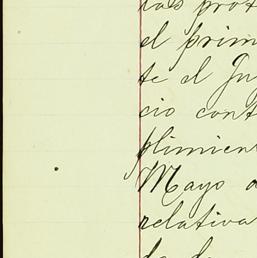 las prot
el prim
te el Ju
cio cont
plimien
Mayo a
relativa